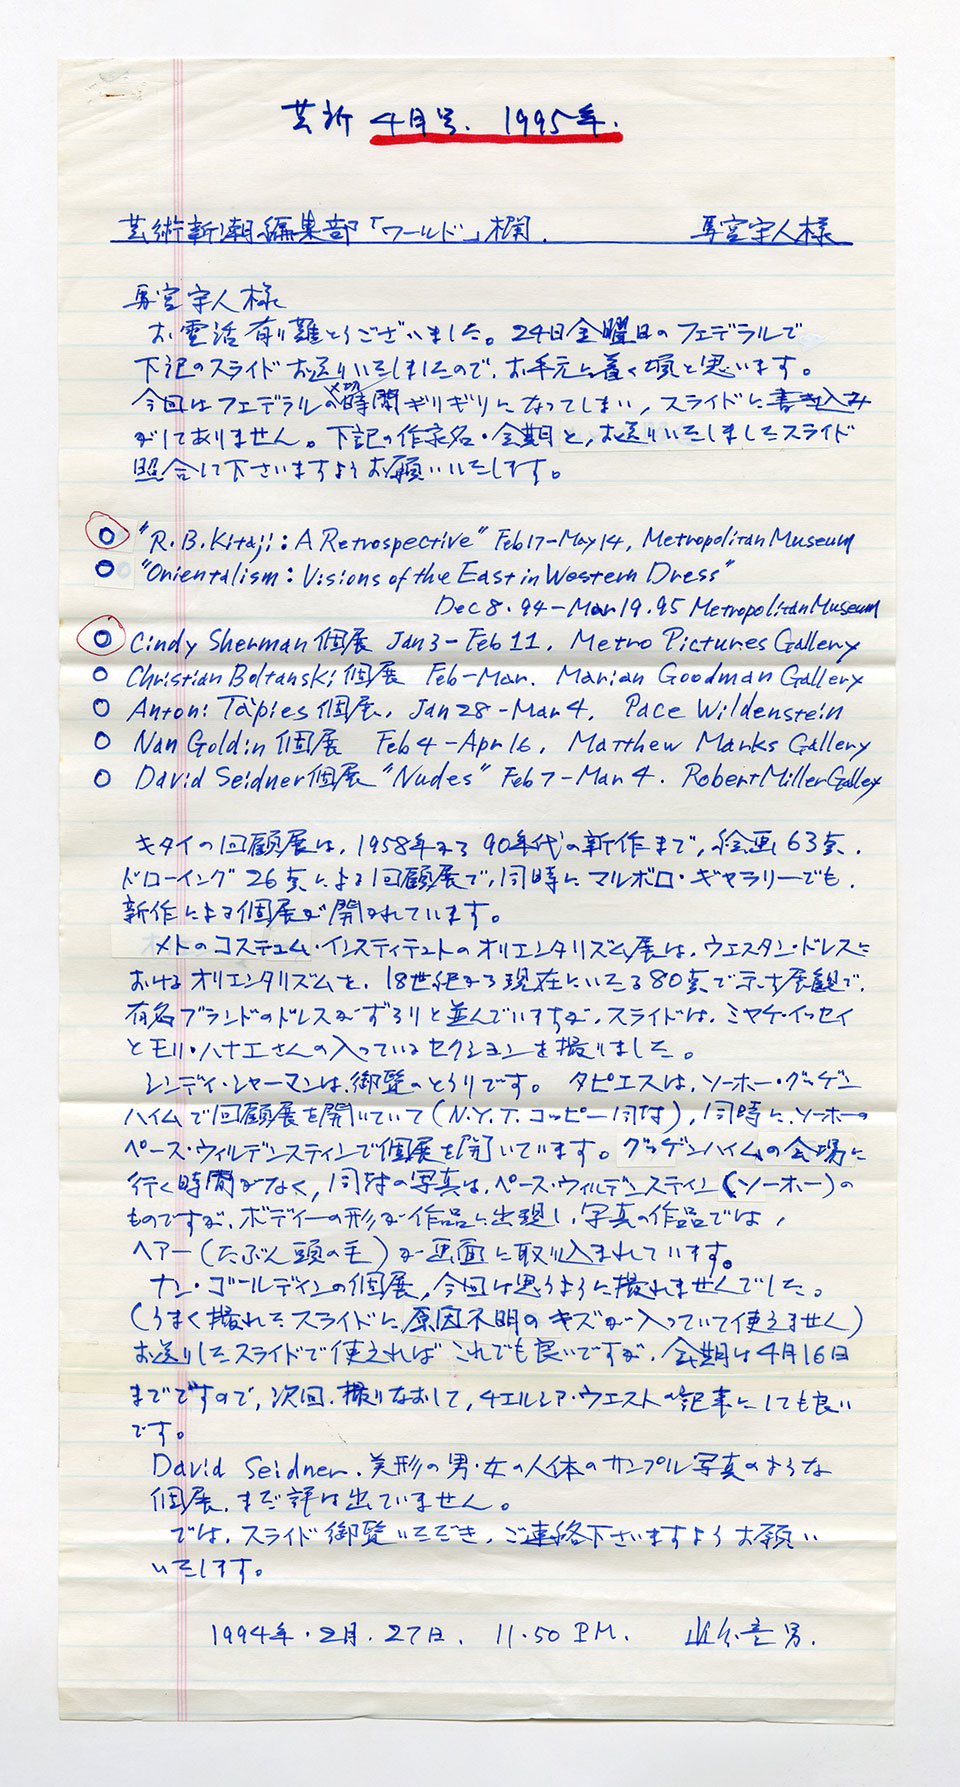 芸新 4月号. 1995年.
芸術新潮編集部「ワールド」欄. 馬宮守人様
馬宮守人様
お電話有り難とうございました。24日金曜日のフェデラルで
下記のスライドお送りいたしましたので、お手元に着く頃と思います。
今回はフェデラルの〆切時間ギリギリになってしまい, スライドに書き込み
がしてありません。下記の作家名・会期と, お送りいたしましたスライド
照合して下さいますようお願いいたします。
○ "R.B.Kitaji: A Retrospective" Feb17-May14, Metropolitan Museum
○ "Orientalism: Visions of the East in Western Dress"
Dec 8.94-Mar 19.95 Metropolitan Museum
○ Cindy Sherman 個展 Jan3-Feb 11, Metro Pictures Gallery
○ Christian Boltanski 個展 Feb-Mar. Marian Goodman Gallery
○ Antoni Tàpies 個展, Jan 28-Mar 4, Pace Wildenstein
○ Nan Goldin 個展 Feb 4-Apr 16, Matthew Marks Gallery
○ David Seidner 個展 "Nudes" Feb 7-Mar 4. Robert Miller Galley
キタイの回顧展は, 1958年から90年代の新作まで, 絵画63点,
ドローイング26点による回顧展で, 同時にマルボロ・ギャラリーでも,
新作による個展が開かれています。
メトのコステュム・インスティテュトのオリエンタリズム展は, ウェスタン・ドレスに
おけるオリエンタリズムを, 18世紀から現在にいたる80点で示す展観で,
有名ブランドのドレスがずらりと並んでいますが, スライドは, ミヤケ・イッセイ
とモリ・ハナエさんの入っているセクションを撮りました。
シンディ・シャーマンは, 御覧のとうりです。 タピエスは, ソーホー・グッゲン
ハイムで回顧展を開いていて(N.Y.T.コッピー同封), 同時に, ソーホーの
ペース・ウィルデンスティンで個展を開いています。グッゲンハイムの会場に
行く時間がなく, 同封の写真は, ペース・ウィルデンスティン(ソーホー)の
ものですが, ボディーの形が作品に出現し, 写真の作品では,
ヘアー(たぶん頭の毛)が画面に取り込まれています。
ナン・ゴールディンの個展, 今回は思うように撮れませんでした。
(うまく撮れたスライドに原因不明のキズが入っていて使えません)
お送りしたスライドで使えればこれでも良いですが, 会期は4月16日
までですので, 次回, 撮りなおして, チエルシア・ウエストの記事にしても良い
です。
David Seidner. 美形の男・女の人体のサンプル写真のような
個展. まだ評は出ていません。
では, スライド御覧いただき, ご連絡下さいますようお願い
いたします。
1994年. 2月. 27日. 11.50 P.M.